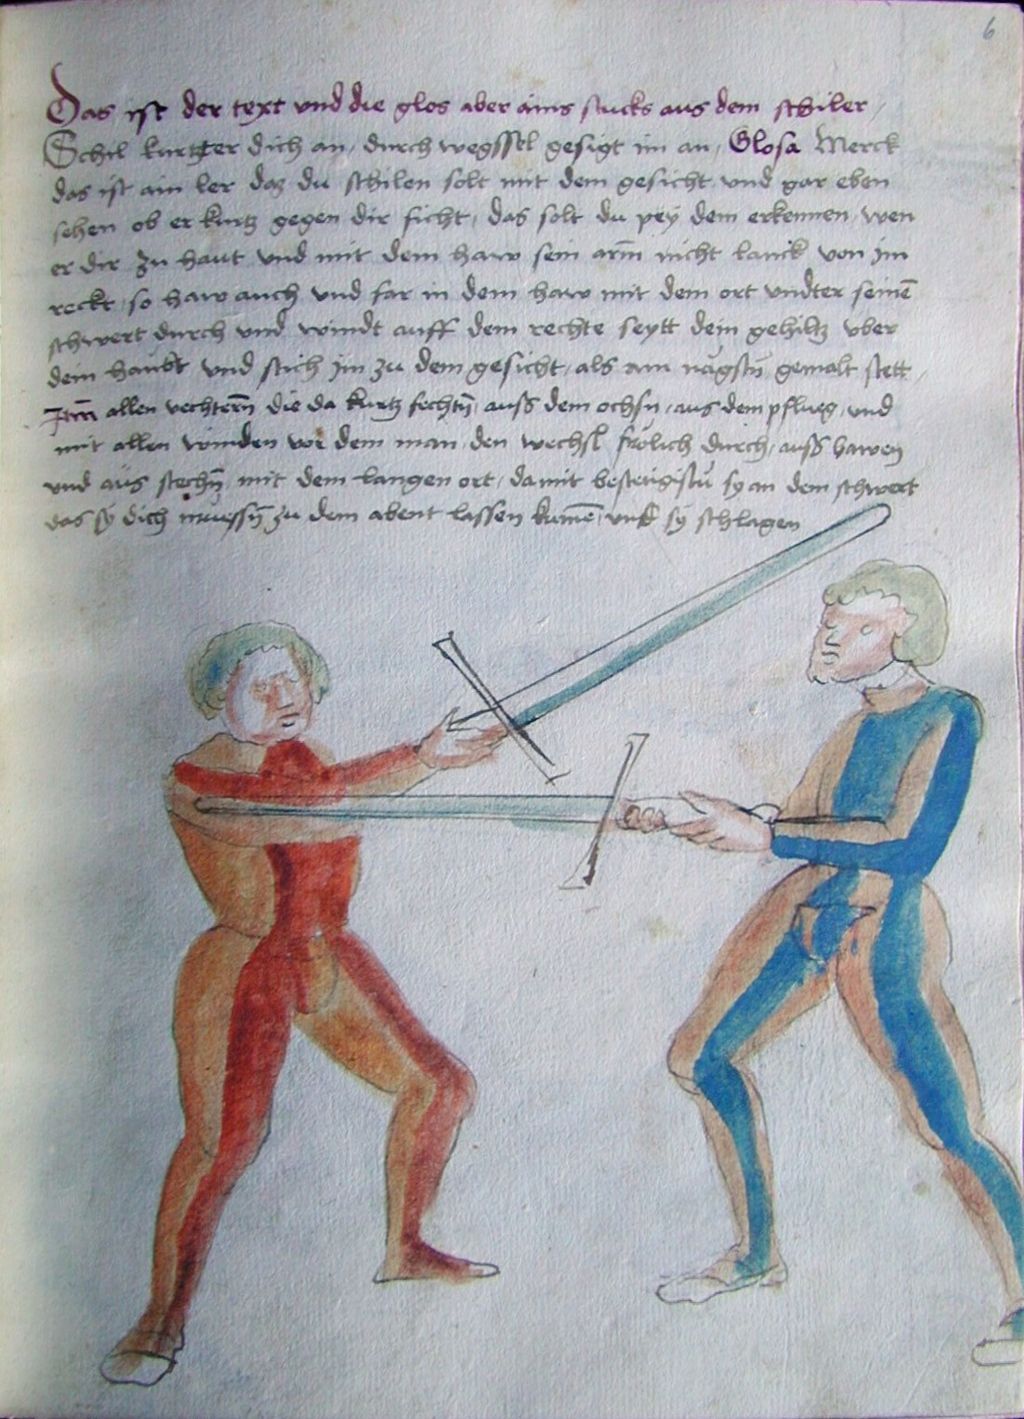 6
Das ist der text vnd die glos aber ains stucks aus dem schiler /
Schil kurtzer dich an / durchwegssel gesigt im an / Glosa Merck
das ist ain ler daz du schilen solt mit dem gesicht vnd gar eben
sehen ob er kurtz gegen dir ficht / das solt du pey dem erkennen / wen
er dir zu haut vnd mit dem haw sein arm̄ nicht lanck von im
reckt / so haw auch vnd far in dem haw mit dem ort vndter seinē
schwert durch vnd windt auff dem rechte seytt dein gehiltz vber
dein haubt vnd stich im zu dem gesicht / als am nagstn̄ gemalt stett /
Itm̄ allen vechtern̄ die da kurtz fechtn̄ / auss dem ochsn / aus dem pflueg / vnd
mit allen winden vor dem man / den wechsl frölich durch / auss hawen
vnd aus stechn̄ mit dem langen ort / damit bestetigistu sy an dem schwert
das sy dich muessn̄ zu dem abent lassen kumē / vnd sy schlagen